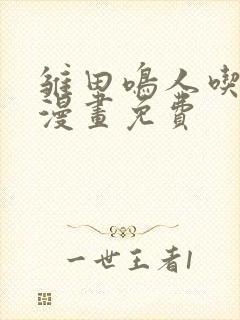 雏田鳴人喫
漫畫免費
一世王者1